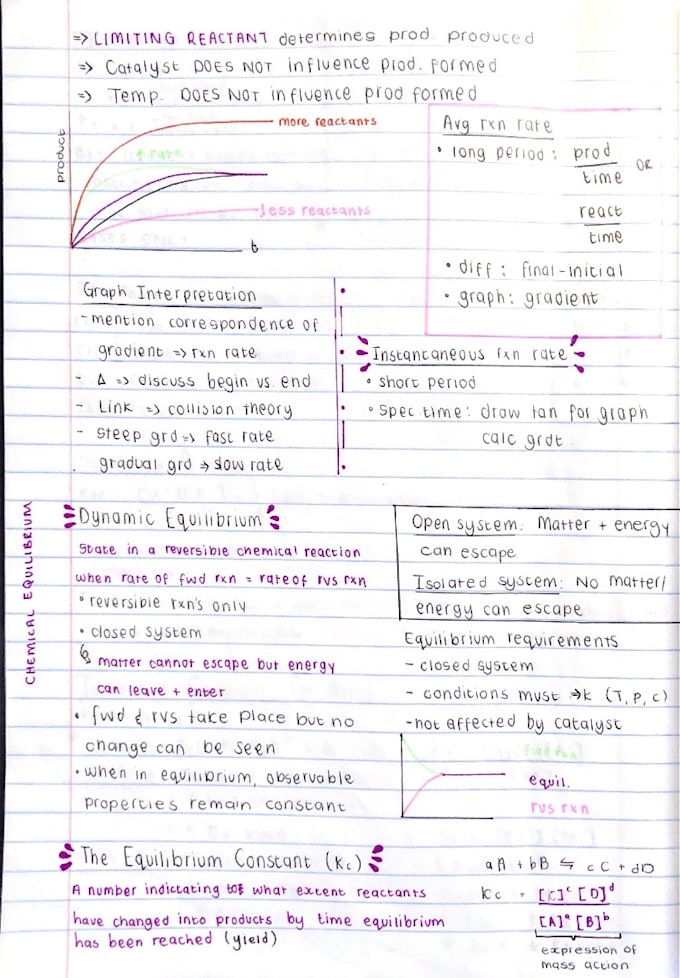 ⇒ LIMITING REACTANT determines prod. produced
⇒ Catalyst DOES NOT influence prod. formed
⇒ Temp. DOES NOT influence prod formed
product
more reactants
↑ rate
less reactants
t
Avg rxn rate
• long period : prod
time
OR
react
time
• diff : final-initial
• graph : gradient
Graph Interpretation
- mention correspondence of
gradient ⇒ rxn rate
- Δ ⇒ discuss begin vs. end
- Link ⇒ collision theory
- Steep grd ⇒ fast rate
gradual grd ⇒ slow rate
Instantaneous rxn rate
• short period
• spec time : draw tan for graph
calc grdt
CHEMICAL EQUILIBRIUM
Dynamic Equilibrium
State in a reversible chemical reaction
when rate of fwd rxn = rate of rvs rxn
• reversible rxn's only
• closed system
↳ matter cannot escape but energy
can leave + enter
• fwd & rvs take place but no
change can be seen
• when in equilibrium, observable
properties remain constant
Open system: Matter + energy
can escape
Isolated system: No matter/
energy can escape
Equilibrium requirements
- closed system
- conditions must ⇒k (T, P, C)
- not affected by catalyst
fwd rxn
equil.
rvs rxn
The Equilibrium Constant (Kc)
A number indictating to what extent reactants
have changed into products by time equilibrium
has been reached (yield)
aA + bB ⇋ cC + dD
Kc = [C]ᶜ [D]ᵈ
[A]ᵃ [B]ᵇ
expression of
mass action